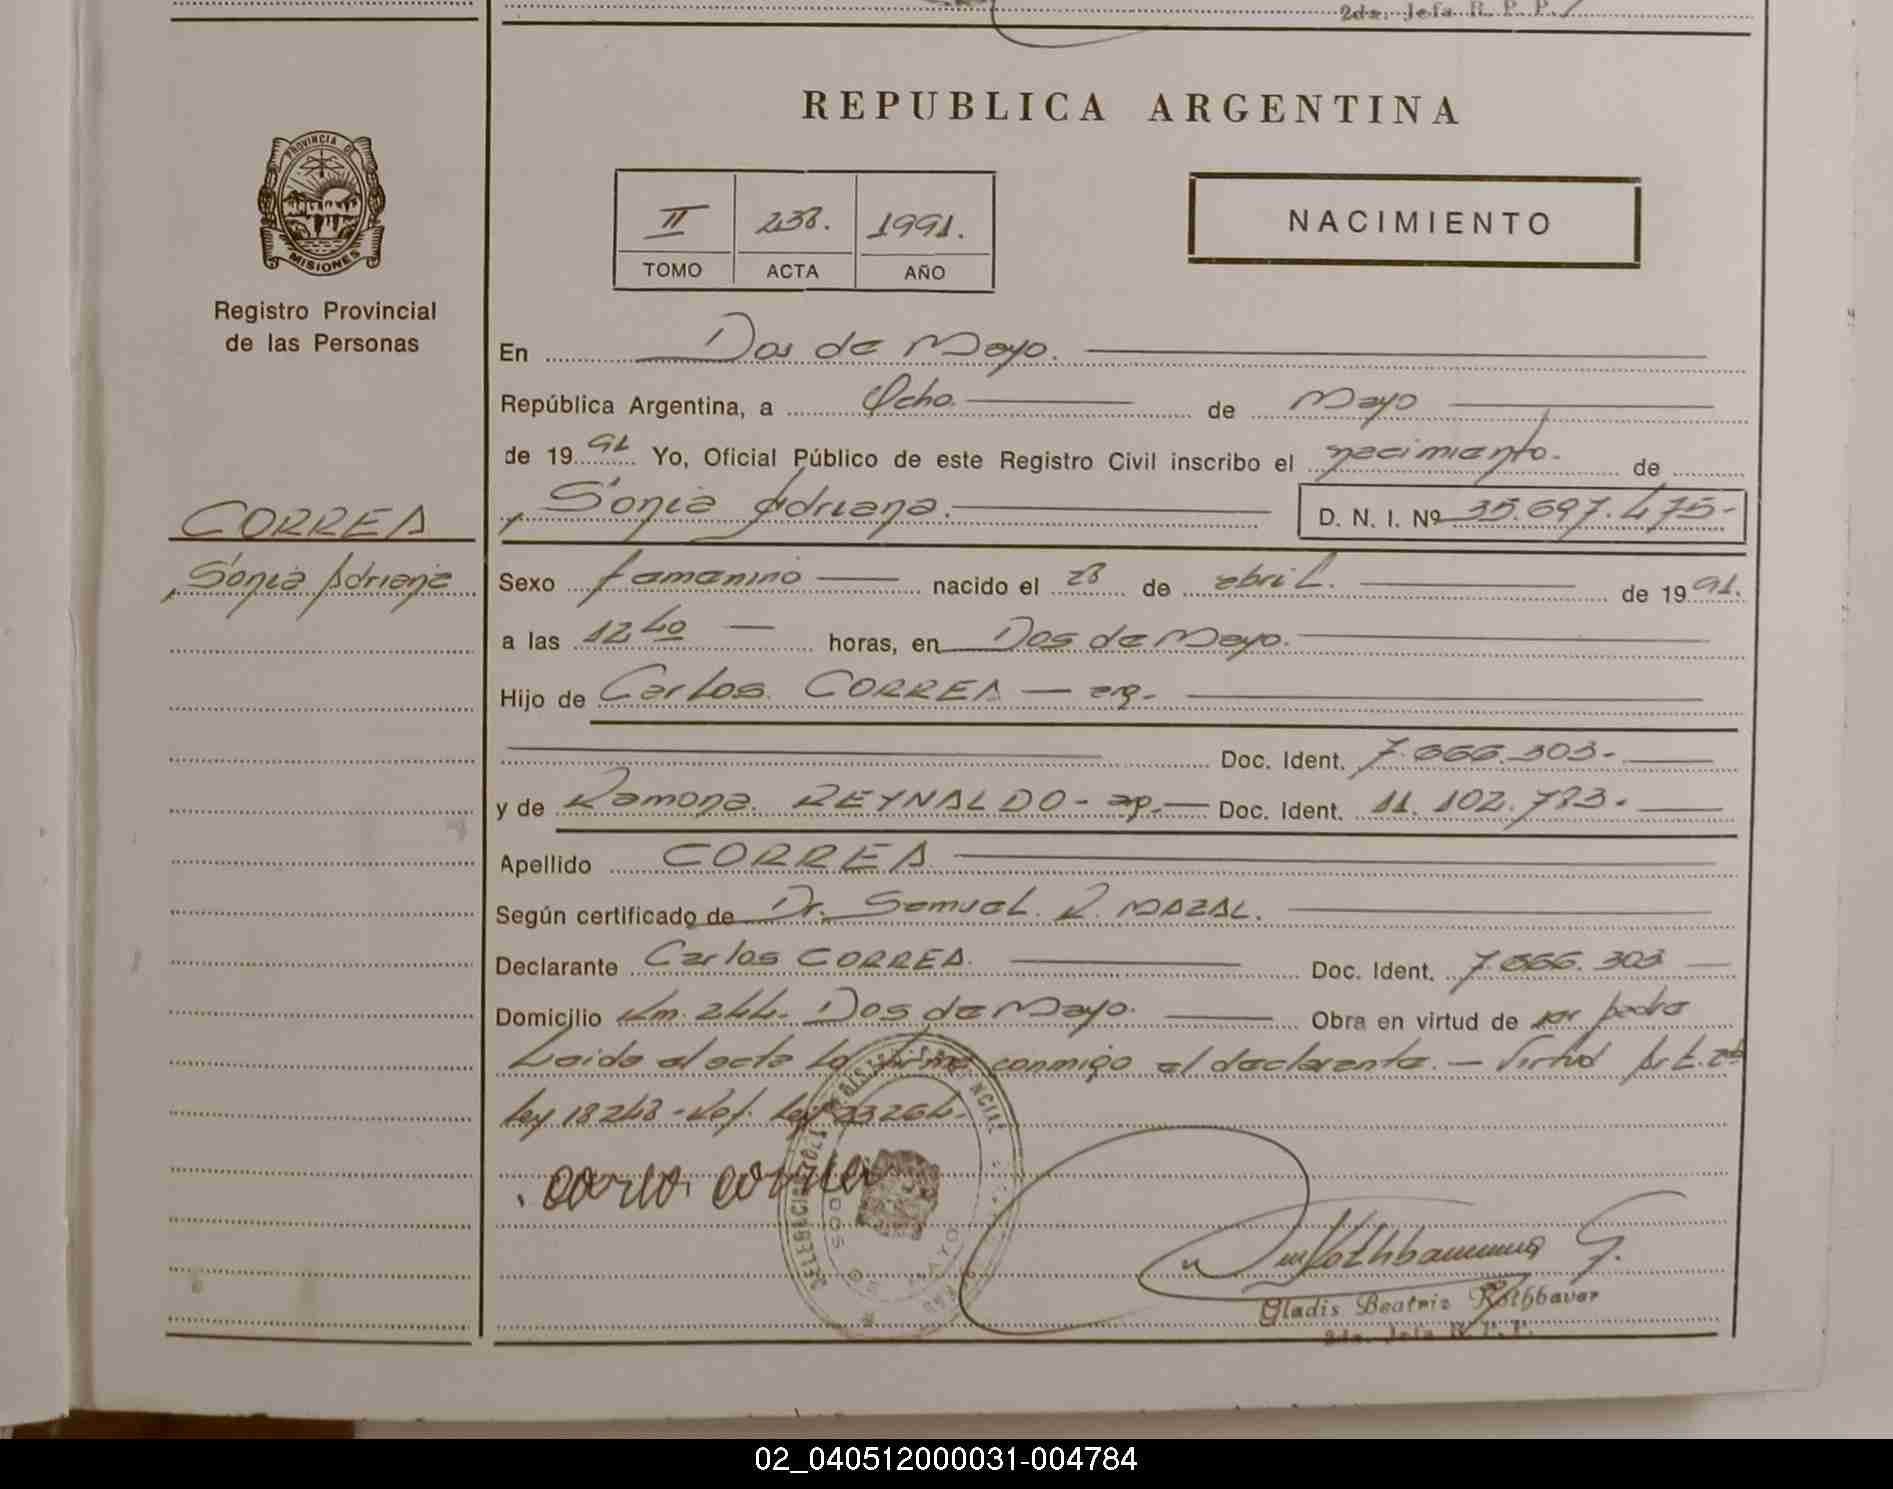 2da. Jefa R. P. P.
REPUBLICA ARGENTINA
PROVINCIA DE
MISIONES
Registro Provincial
de las Personas
II 238. 1991.
TOMO ACTA AÑO
NACIMIENTO
En Dos de Mayo.
República Argentina, a Ocho. de Mayo
de 1991 Yo, Oficial Público de este Registro Civil inscribo el nacimiento. de
Sonia Adriana. D. N. I. Nº 35.697.475-
CORREA
Sonia Adriana
Sexo femenino nacido el 28 de abril. de 1991.
a las 12 40 horas, en Dos de Mayo.
Hijo de Carlos CORREA — arg.
Doc. Ident. 7.666.303-
y de Ramona REYNALDO - arg. Doc. Ident. 11.102.783.
Apellido CORREA
Según certificado de Dr. Samuel R. MAZAL.
Declarante Carlos CORREA. Doc. Ident. 7.666.303
Domicilio Km. 244. Dos de Mayo. Obra en virtud de ser padre
Leida el acta la firma conmigo el declarante. — Virtud Art. 2do
ley 18248 - Ref. ley 23264.
Carlos Correa
DOS DE MAYO
Gladis Beatriz Rothbauer
2da. Jefa R. P. P.
02_040512000031-004784